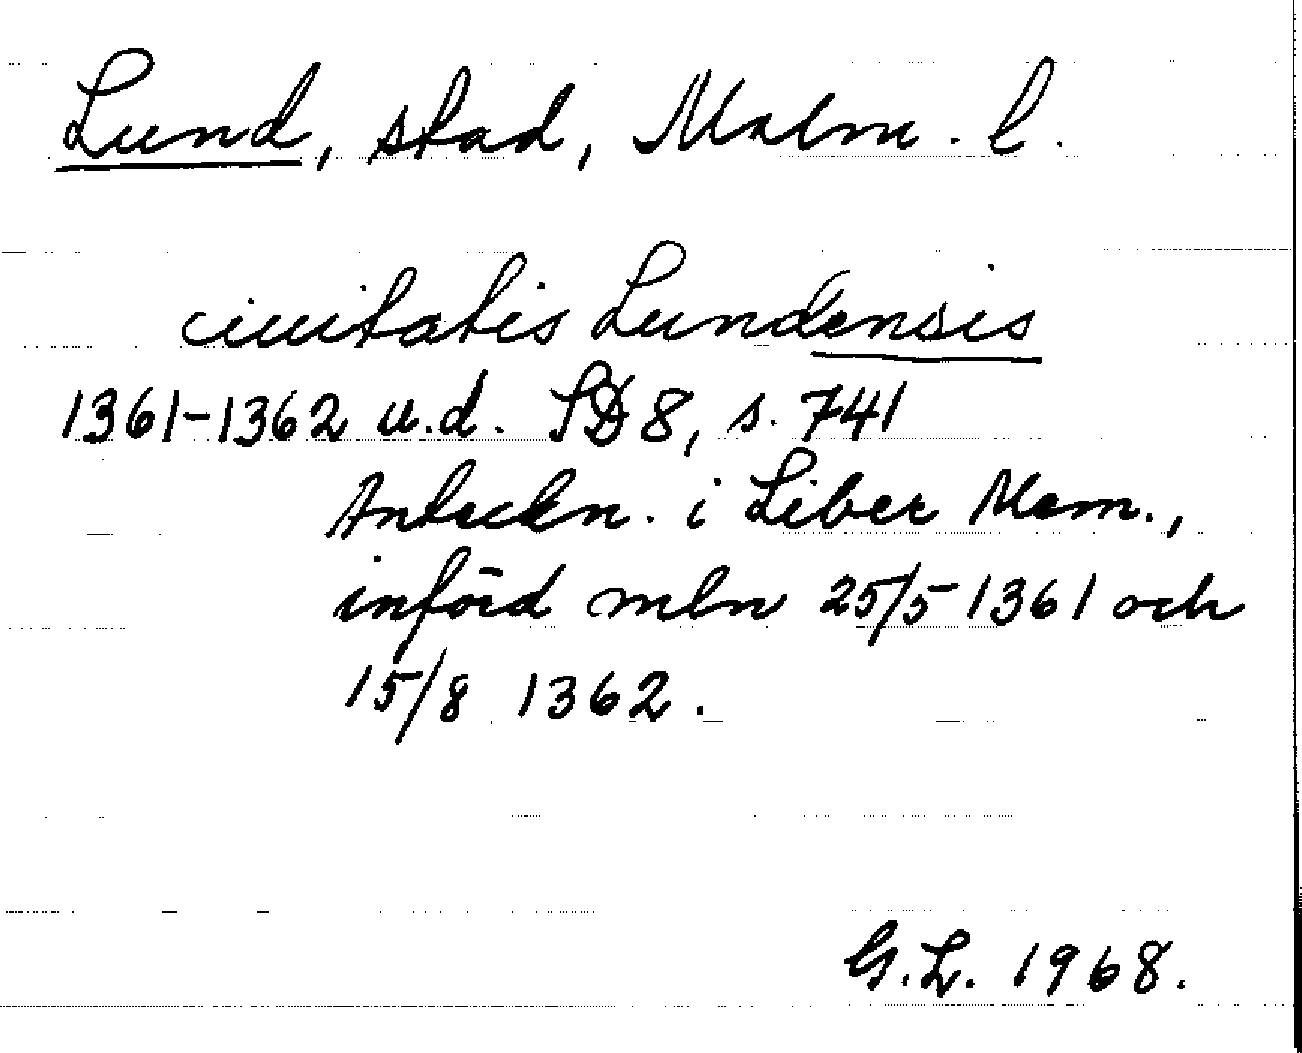 Lund, stad, Malm. l.
ciuitatis Lundensis
1361-1362 u.d. SD 8, s. 741
Anteckn. i Liber Mem.,
införd mln 25/5 1361 och
15/8 1362.
G.L. 1968.